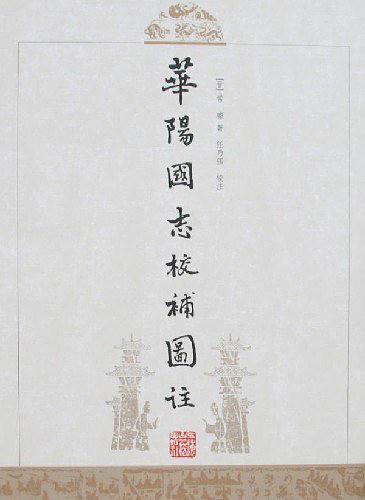 華陽國志校補圖注
[晋] 常璩 著 任乃强 校注